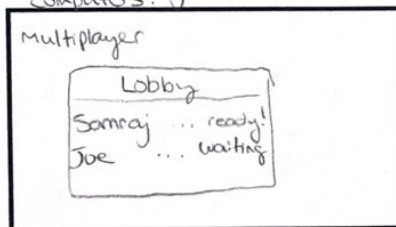 Multiplayer
Lobby
Samraj ... ready!
Joe ... waiting